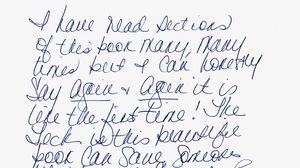 I have read sections
of this book many, many
times but I can honestly
say again & again it is
like the first time! The
 in this beautiful
book can save someone